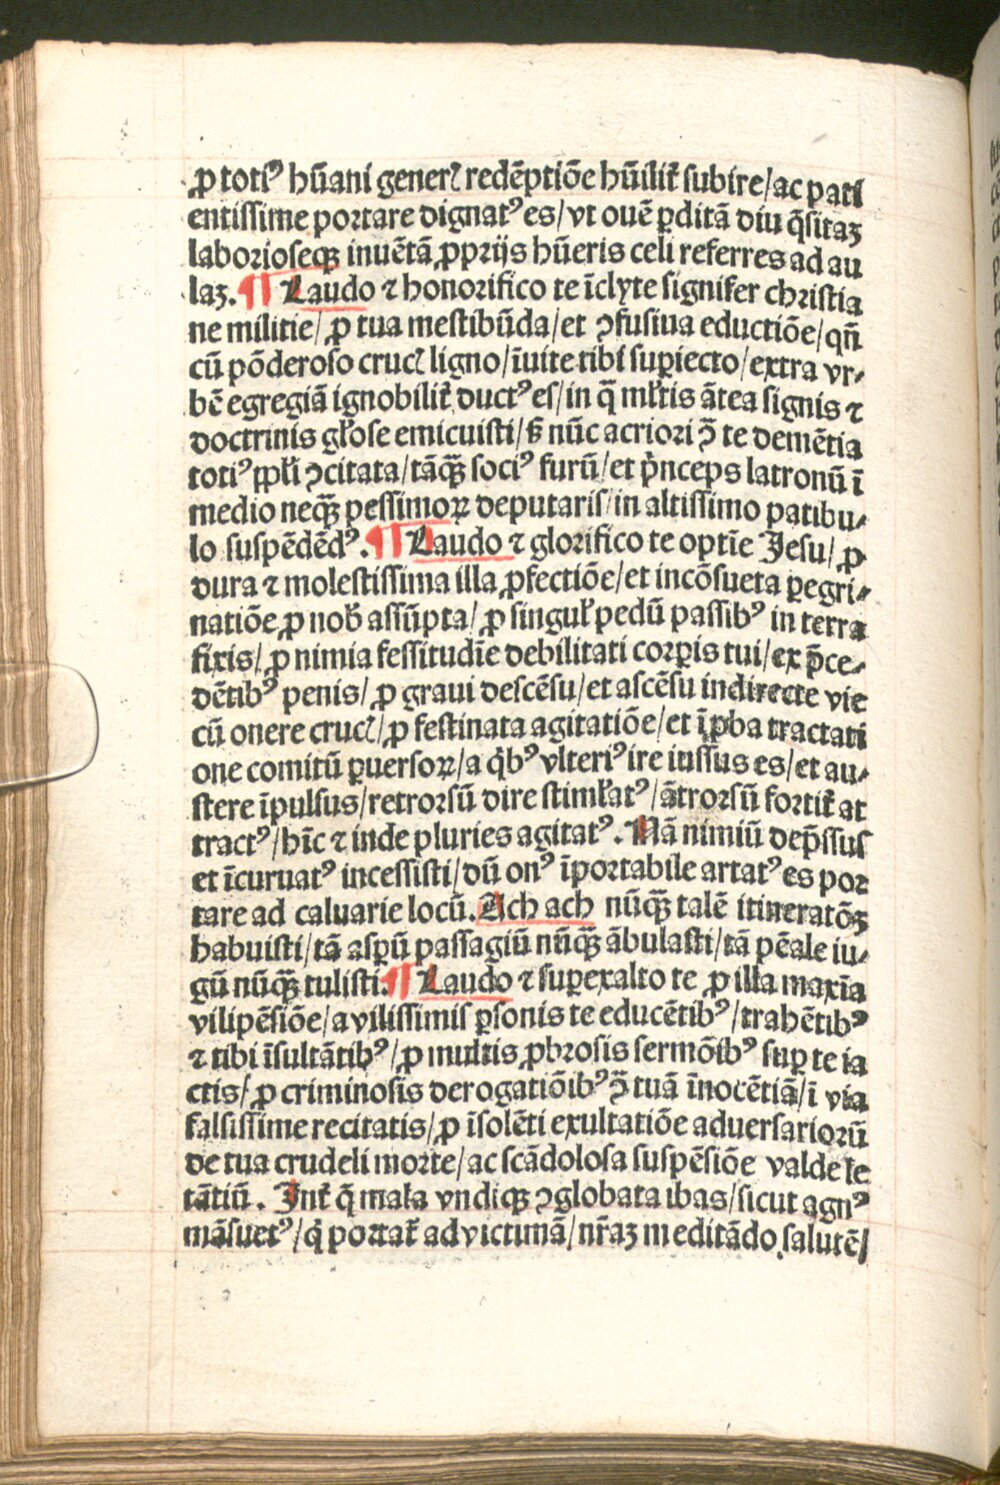 ꝓ totiꝰ hūani generꝭ redēptiōe hūilit᷑ subire/ac pati
entissime portare dignatꝰ es/vt ouē ꝑditā diu q̄sitaꝫ
laborioseqꝫ inuētā ꝓprijs hūeris celi referres ad au
laꝫ. ¶ Laudo ⁊ honorifico te īclyte signifer christia
ne militie/ꝓ tua mestibūda/et ꝯfusiua eductiōe/qn̄
cū pōderoso crucꝭ ligno/īuite tibi suꝑiecto/extra vr⸗
bē egregiā ignobilit᷑ ductꝰ es/in q̄ mꝉtis ātea signis ⁊
doctrinis gꝉose emicuisti/ſꝫ nūc acriori ꝯ̄ te demētia
totiꝰ ppꝉi ꝯcitata/tāqꝫ̄ sociꝰ furū/et pͥnceps latronū ī
medio neqꝫ̄ pessimoꝝ deputaris/in altissimo patibu⸗
lo suspēdēdꝰ. ¶ Laudo ⁊ glorifico te optīe Jesu/ꝓ
dura ⁊ molestissima illa ꝓfectiōe/et incōsueta ꝑegri⸗
natiōe ꝓ nob̄ assūpta/ꝓ singuꝉ pedū passibꝰ in terra
fixis/ꝓ nimia fessitudīe debilitati corꝑis tui/ex p̄ce⸗
dētibꝰ penis/ꝓ graui descēsu/et ascēsu indirecte vie
cū onere crucꝭ/ꝓ festinata agitatiōe/et īꝓba tractati
one comitū ꝑuersoꝝ/a qͥbꝰ vlteriꝰ ire iussus es/et au⸗
stere īpulsus/retrorsū dire stimꝉatꝰ/ātrorsū fortit᷑ at
tractꝰ/hīc ⁊ inde pluries agitatꝰ. Nā nimiū dep̄ssus
et īcuruatꝰ incessisti/dū onꝰ īportabile artatꝰ es por
tare ad caluarie locū. Ach ach nūqꝫ̄ talē itineratōꝫ
habuisti/tā asꝑū passagiū nūqꝫ̄ ābulasti/tā pēale iu⸗
gū nūqꝫ̄ tulisti. ¶ Laudo ⁊ suꝑexalto te ꝓ illa maxīa
vilipēsiōe/a vilissimis ꝑsonis te educētibꝰ/trahētibꝰ
⁊ tibi īsultātibꝰ/ꝓ multis ꝓbrosis sermōibꝰ suꝑ te ia
ctis/ꝓ criminosis derogatiōibꝰ ꝯ̄ tuā īnocētiā/ī via
falsissime recitatis/ꝓ īsolēti exultatiōe aduersariorū
de tua crudeli morte/ac scādolosa suspēsiōe valde le
tātiū. Int᷑ q̄ mala vndiqꝫ ꝯglobata ibas/sicut agnꝰ
māsuetꝰ/qͥ portat᷑ ad victimā/nr̄aꝫ meditādo salutē/